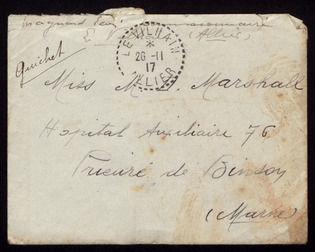 (Allier)
LE VILHAIN
*
26-11
17
ALLIER
Guichet
Miss M. Marshall
Hopital Auxiliaire 76
Prieuré de Binson
(Marne)